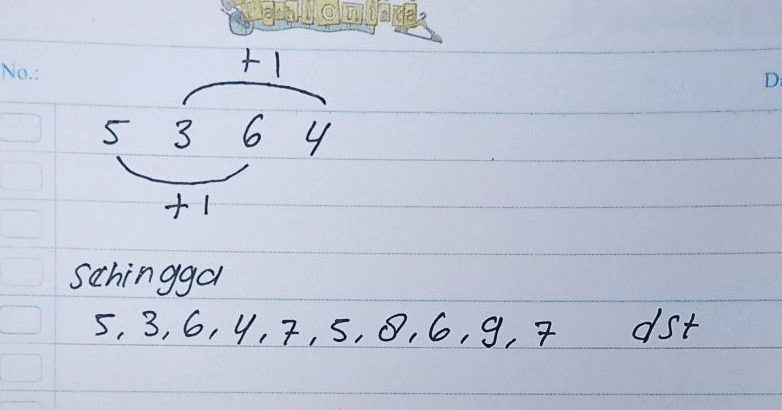 No.:
+1
5 3 6 4
+1
sehingga
5, 3, 6, 4, 7, 5, 8, 6, 9, 7 dst